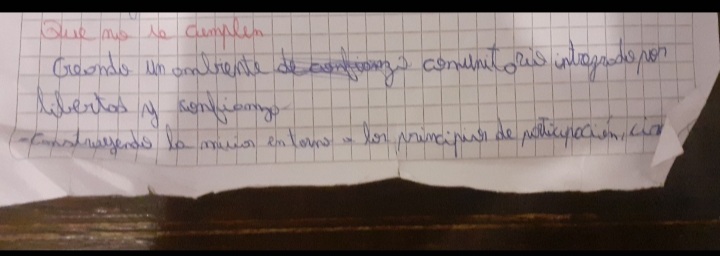 Que no se cumplen
Creando un ambiente de confianza comunitario integrado por
libertad y confianza
- Construyendo la entorno a los principios de participación,